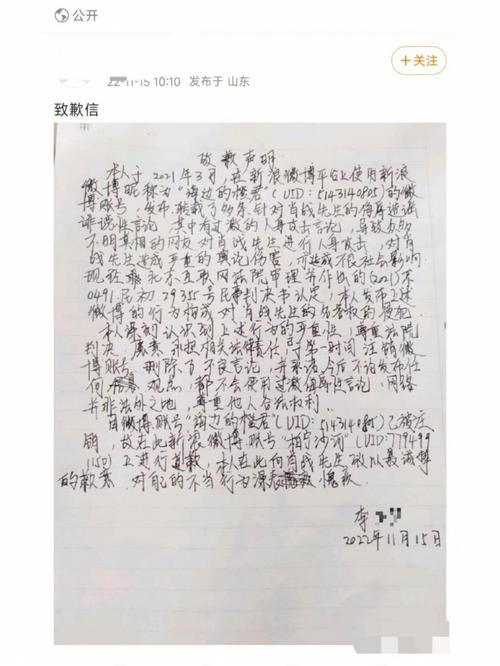 公开
+关注
22-11-15 10:10 发布于 山东
致歉信
致歉声明
本人于2021年3月,在新浪微博平台上使用新浪
微博昵称为“海边的怪君”(UID:5143140805)的微
博账号,发布、转载了多条针对肖战先生的侮辱诋毁
诽谤性言论,其中有过激的人身攻击言论,导致众多
不明真相的网友对肖战先生进行人身攻击,对肖
战先生造成严重的舆论伤害,亦造成不良社会影响。
现经北京互联网法院审理并作出的(2021)京
0491民初29355号民事判决书认定,本人发布上述
微博的行为构成对肖战先生的名誉权的侵犯。
本人深刻认识到上述行为的严重性,尊重法院
判决,愿意承担相关法律责任,已第一时间注销微
博账号,删除了不良言论,并承诺今后不论发布任
何观点,都不会使用过激侮辱性言论,网络
并非法外之地,尊重他人合法权利。
因微博账号“海边的怪君”(UID:5143140805)已被注
销,故在此新浪微博账号“与沙河”(UID:779499
1150)上进行道歉,本人在此向肖战先生致以最诚挚
的歉意,对自己的不当行为深表愧疚。
李
2022年11月15日